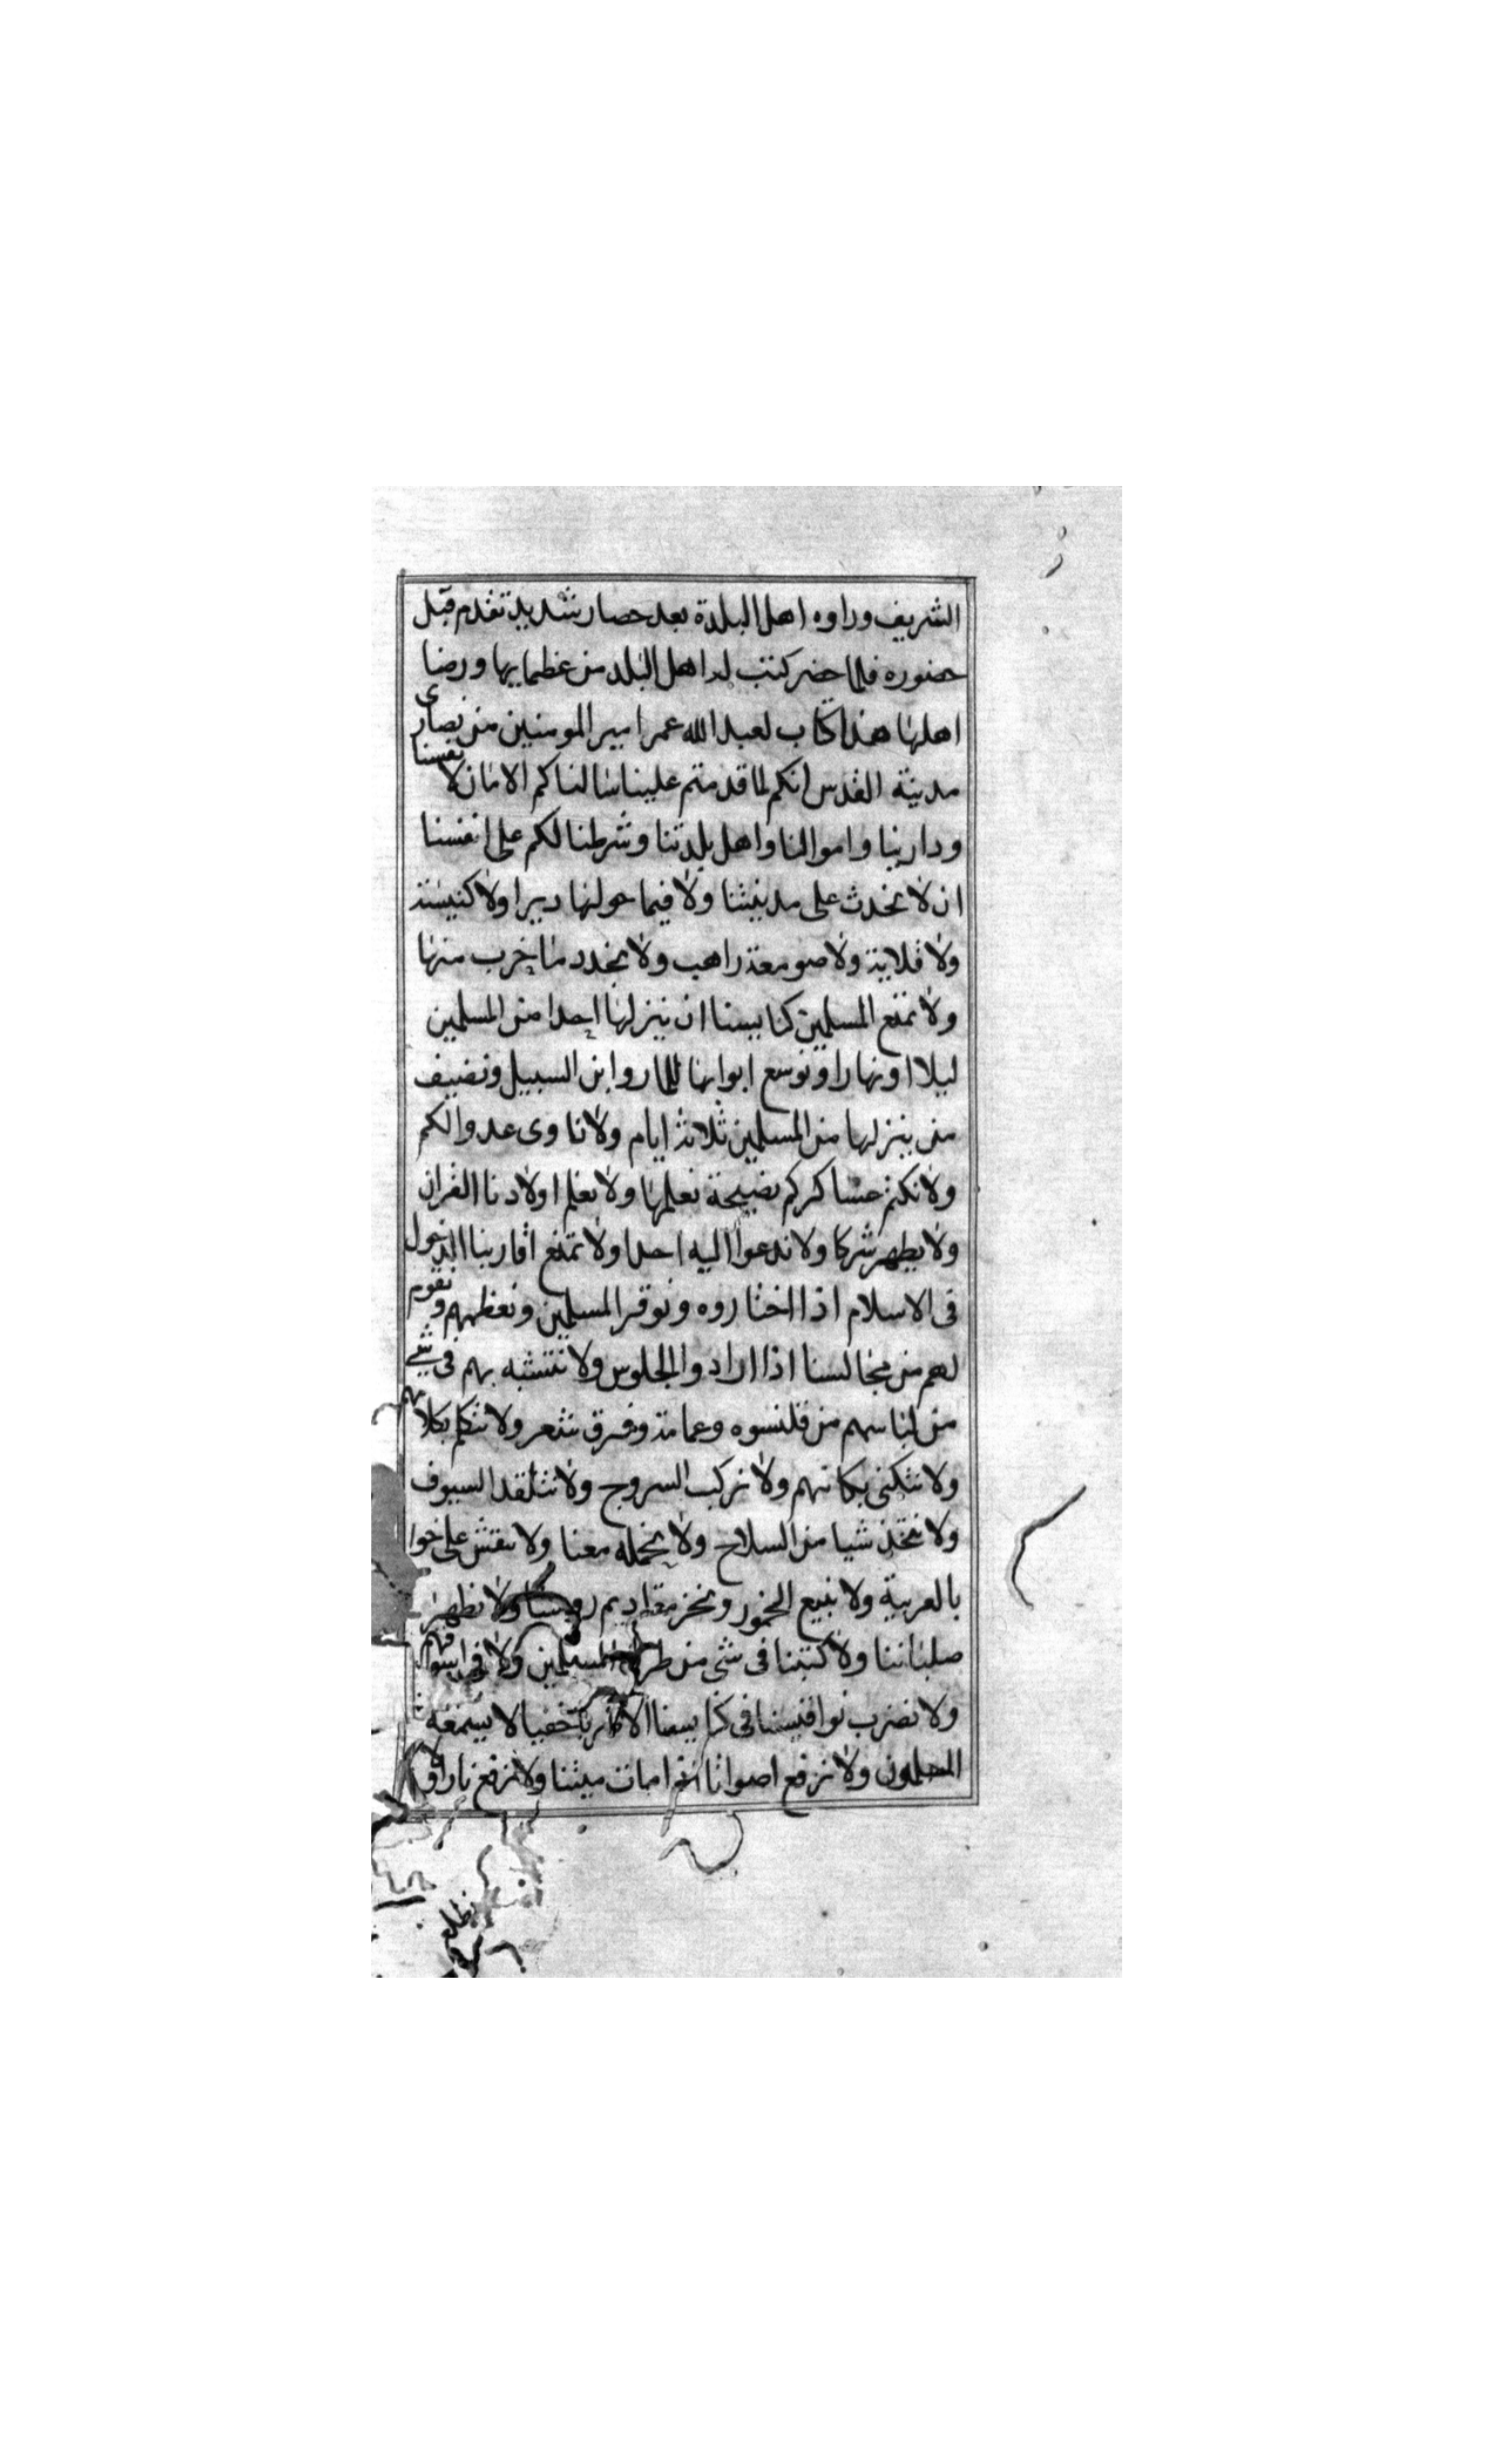 الشريف وراوه اهل البلدة بعد حصار شديد تقدم قبل
حضوره فلما حضر كتب له اهل البلد من عظمايها ورضا
اهلها هذا كتاب لعبد الله عمر امير المومنين من نصارى
مدينة القدس انكم لما قدمتم علينا سالناكم الامان لانفسنا
ودارينا واموالنا واهل بلدتنا وشرطنا لكم على انفسنا
ان لا نحدث على مدينتنا ولا فيما حولها ديرا ولا كنيسة
ولا قلاية ولا صومعة راهب ولا نجدد ما خرب منها
ولا نمنع المسلمين كنايسنا ان ينزلها احدا من المسلمين
ليلا او نهارا ونوسع ابوابها للمار وابن السبيل ونضيف
من ينزلها من المسلمين ثلاثة ايام ولا ناوى عدوا لكم
ولا نكتم عساكركم نصيحة نعلمها ولا نعلم اولادنا القران
ولا نظهر شركا ولا ندعوا اليه احدا ولا نمنع اقاربنا الدخول
فى الاسلام اذا اختاروه ونوقر المسلمين ونعظمهم ونقوم
لهم من مجالسنا اذا ارادوا الجلوس ولا نتشبه بهم فى شئ
من لباسهم من قلنسوه وعمامة وفرق شعر ولا نتكلم بكلامهم
ولا نتكنى بكناهم ولا نركب السروج ولا نتقلد السيوف
ولا نتخذ شيا من السلاح ولا نحمله معنا ولا ننقش على خوا
بالعربية ولا نبيع الخمور ونجز مقاديم روسنا ولا نظهر
صلباننا ولا كتبنا فى شى من طرق المسلمين ولا فى اسواقهم
ولا نضرب نواقيسنا فى كنايسنا الا ضربا خفيا لا يسمعه
المسلمون ولا نرفع اصواتنا امات ميتنا ولا نرفع نارا ولا
نطلع